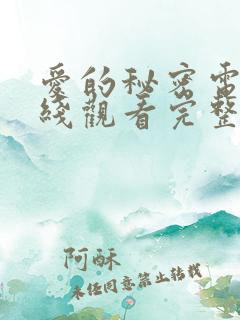 愛的秘密電
綫觀看完整
阿酥
未经同意禁止转载